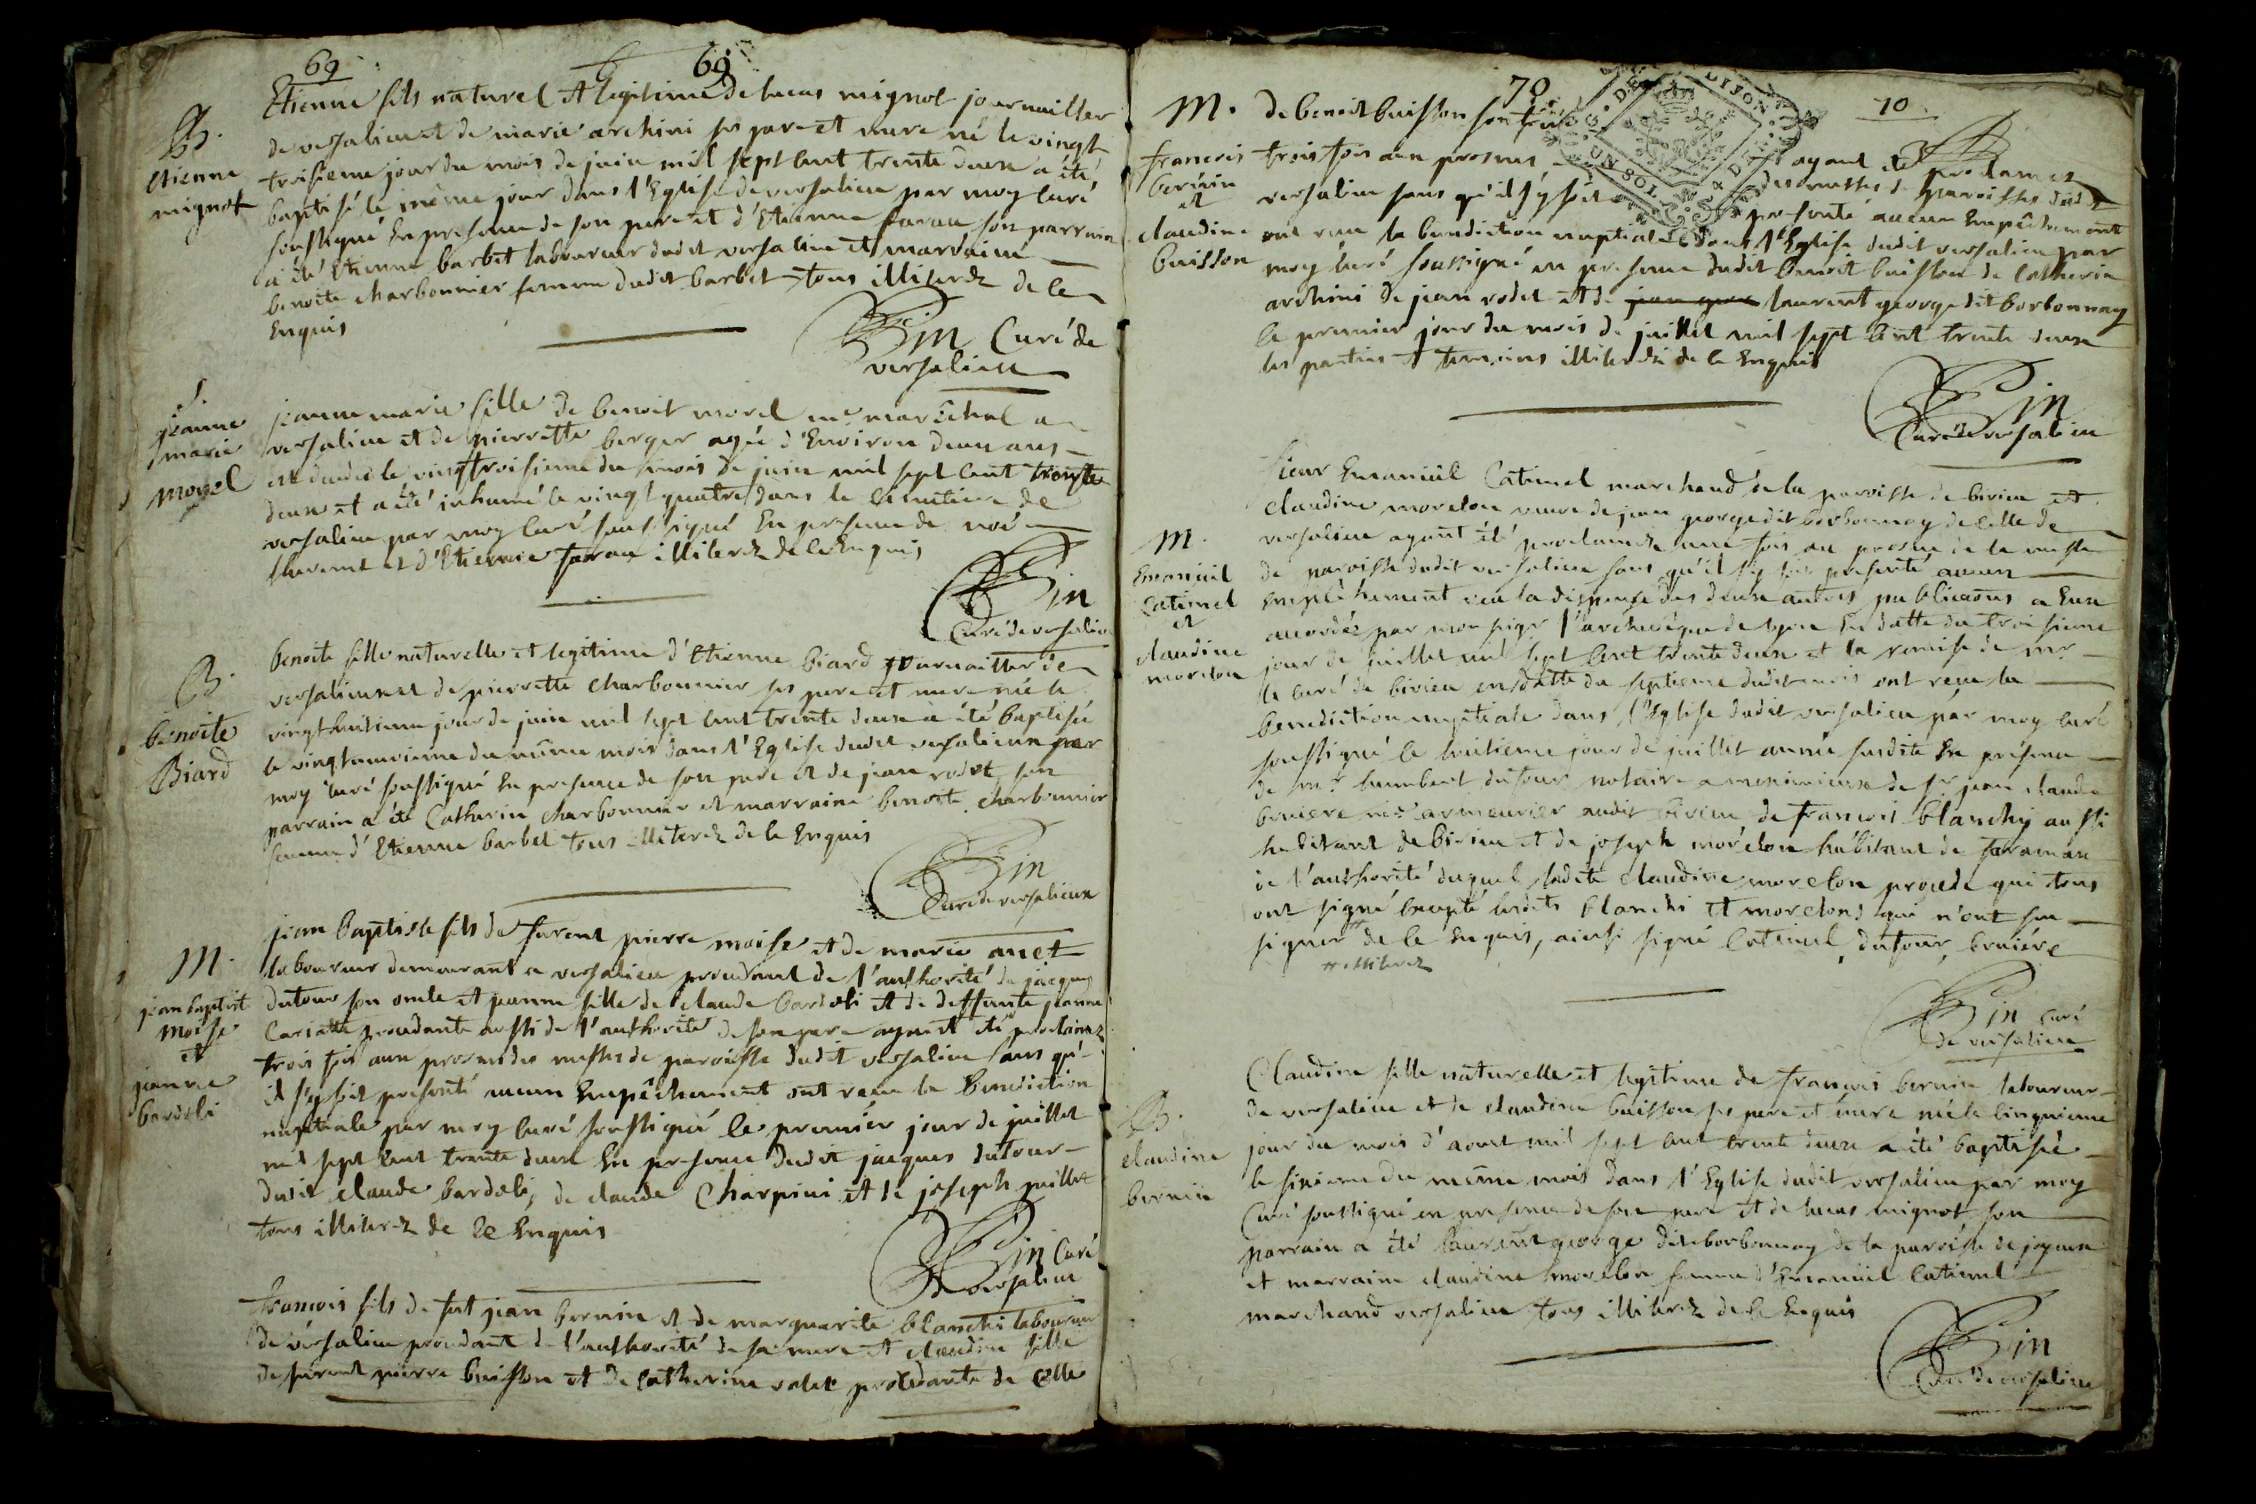 69
69
B.
etienne
mignot
Etienne fils naturel et legitime de lucas mignot journaillier
de versalieu et de marie archini ses pere et mere né le vingt
troisieme jour du mois de juin mil sept cent trente deux a été
baptisé le même jour dans l'Eglise de versalieu par moy curé
soussigné En presence de son pere et d'Etienne faraue son parrain
a été Etienne barbet laboureur dudit versalieu et marraine
benoite charbonnier femme dudit barbet tous illiterez de ce
Enquis
Bin Curé de
versalieu
jeanne
marie
morel
jeanne marie fille de benoit morel me marêchal a
versalieu et de pierrette berger agée d'Environ deux ans
est decedée le vingtroisieme du mois de juin mil sept cent trente
deux et a été inhumé le vingt quatre dans le cimetiere de
versalieu par moy curé soussigné En presence de noé
laurent et d'Etienne faraue illiterez de ce Enquis
Bin
Curé de versalieu
B.
benoite
Biard
benoite fille naturelle et legitime d'Etienne biard journaillier de
versalieu et de pierrette charbonnier ses pere et mere née le
vingt huitieme jour de juin mil sept cent trente deux a été baptisée
le vingtneuvieme du même mois dans l'Eglise dudit versalieu par
moy curé soussigné En presence de son pere et de jean rodet son
parrain a été Catherin charbonnier et marraine benoite charbonnier
femme d'Etienne barbet tous illiterez de ce Enquis
Bin
Curé de versalieux
M.
jean baptiste
moise
et
jeanne
bardeli
jean baptiste fils de furent pierre moise et de marie anet
laboureur demeurant a versalieu procedant de l'authorité de jacques
dutour son oncle et jeanne fille de claude bardeli et de deffunte jeanne
Cariatte procedante aussi de l'authorité de son pere ayant été proclamez
trois fois aux prosnes des messes de paroisse dudit versalieu sans qu'
il s'y soit presenté aucun Empêchement ont reçu la Benediction
nuptiale par moy curé soussigné le premier jour de juillet
mil sept cent trente deux En presence dudit jacques dutour
dudit claude bardeli, de claude Charpini et de joseph juillet
tous illiterez de ce Enquis
Bin Curé
de versalieu
francois fils de fut jean bernin et de marguerite blanchi laboureur
de versalieu procedant de l'authorité de sa mere et claudine fille
de furent pierre buisson et de Catherine rodet procedante de celle
70
10
GN. DE DIJON
UN SOL 4 D
M.
francois
bernin
et
claudine
buisson
de benoit buisson son frere ayant été proclamez
trois fois aux prosnes des messes de paroisses dudit
versalieu sans qu'il s'y soit presenté aucun Empêchement
ont reçu la benediction nuptiale dans l'Eglise dudit versalieu par
moy curé soussigné en presence dudit benoit buisson de Catherin
archini de jean rodet et de laurent george dit borbonnay
le premier jour du mois de juillet mil sept cent trente deux
les parties et temoins illiterez de ce Enquis
Bin
Curé de versalieu
M.
Emanüel
Catimel
et
claudine
morelon
Sieur Emanüel Catimel marchand de la paroisse de birieu et
claudine morelon veuve de jean george dit borbonnay de celle de
versalieu ayant été proclamez une fois au prosne de la messe
de paroisse dudit versalieu sans qu'il s'y soit presenté aucun
Empêchement veu la dispense des deux autres publications a Eux
accordée par mon seigr l'archevêque de lyon En datte du troisieme
jour de juillet mil sept cent trente deux et la remise de mr
le curé de birieu en datte du septieme dudit mois ont reçu la
benediction nuptiale dans l'Eglise dudit versalieu par moy curé
soussigné le huitieme jour de juillet année susdite En presence
de mr humbert dutour notaire a meximieux de sr jean claude
bruiere me armeurier audit birieu de francois blanchy aussi
habitant de birieu et de joseph morelon habitant de faramans
de l'authorité duquel ladite claudine morelon procede qui tous
ont signé Excepté lesdits blanchi et morelons qui n'ont sçu
signer de ce Enquis, ainsi signé Catimel, dutour, bruiére
# illiterez
Bin Curé
de versalieu
B.
claudine
bernin
Claudine fille naturelle et legitime de françois bernin laboureur
de versalieu et de claudine buisson ses pere et mere née le cinquieme
jour du mois d'aout mil sept cent trente deux a été baptisée
le sixieme du même mois dans l'Eglise dudit versalieu par moy
Curé soussigné en presence de son pere et de lucas mignot son
parrain a été laurent george dit borbonnay de la paroisse de joyeux
et marraine claudine morelon femme d'Emanüel Catimel
marchand versalieu tous illiterez de ce Enquis
Bin
Curé de versalieu